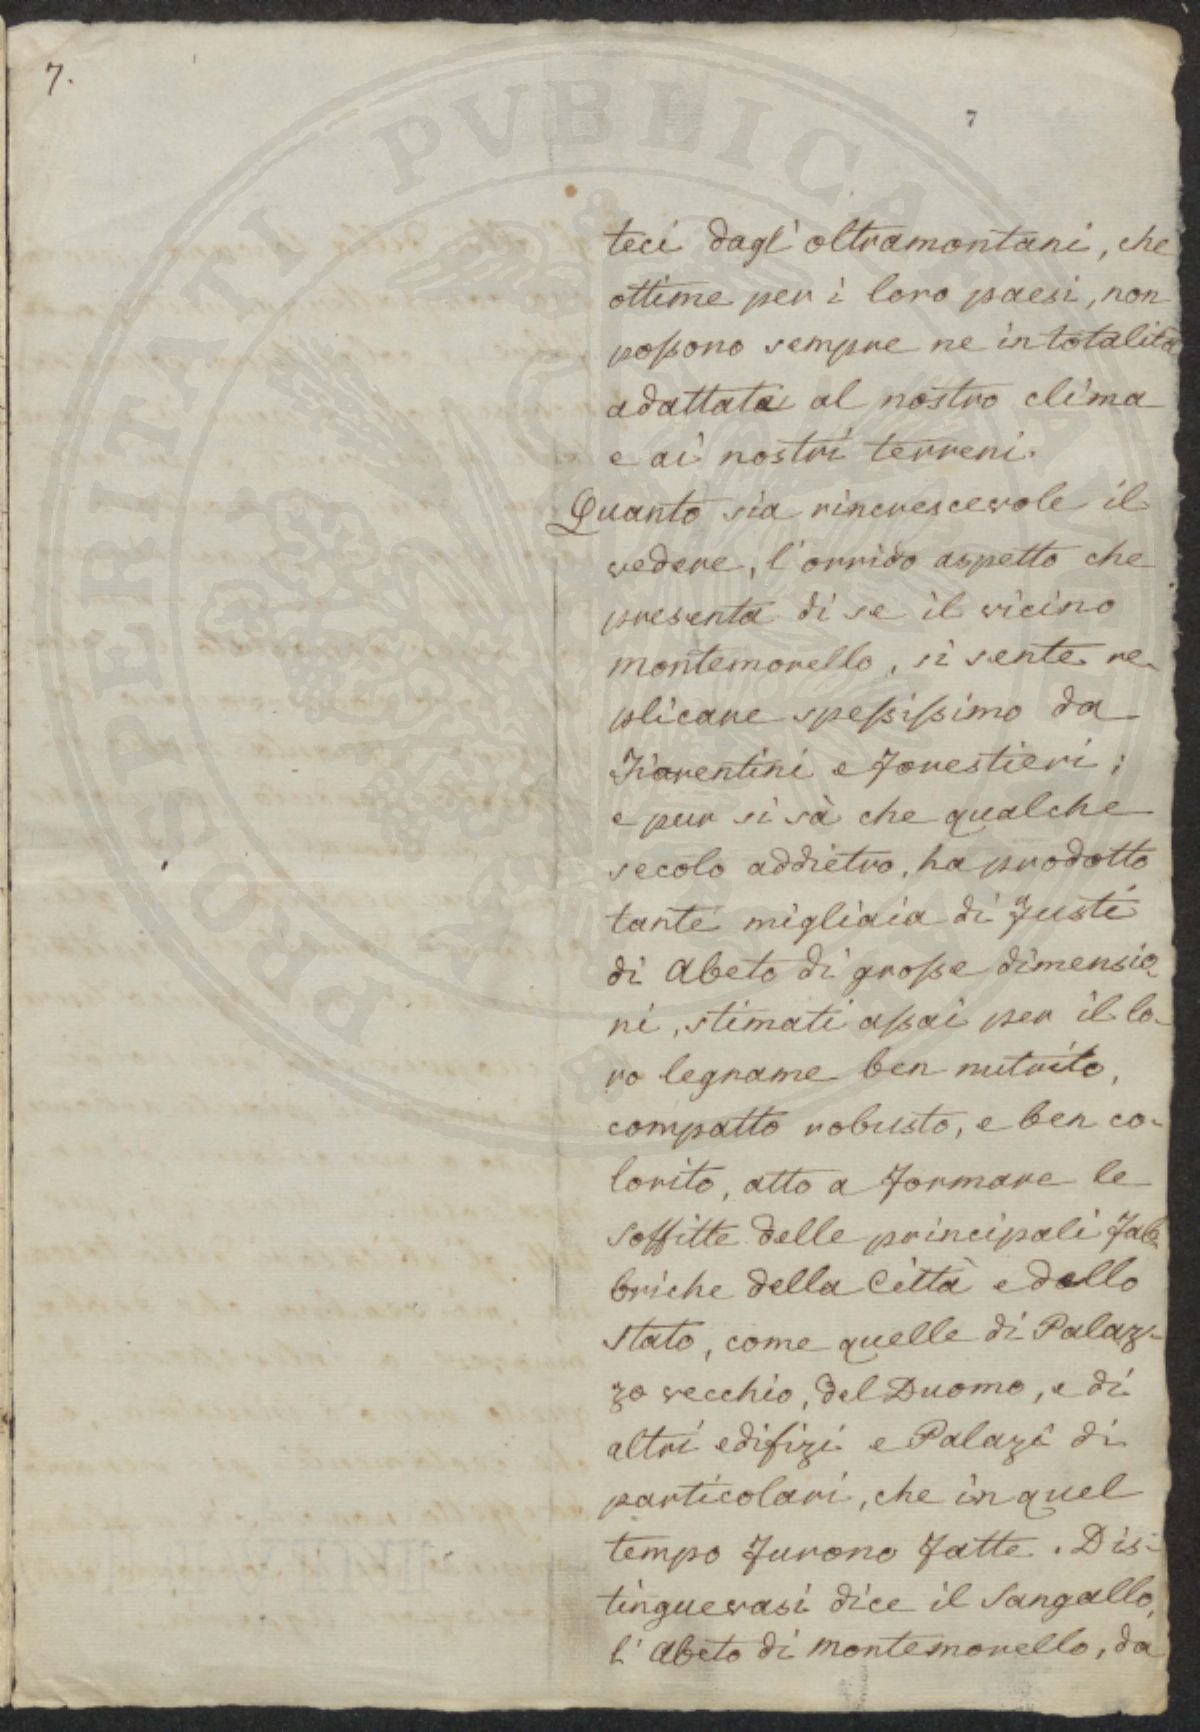 7.
7
teci dagl' oltramontani, che
ottime per i loro paesi, non
possono sempre ne in totalità
adattati al nostro clima
e ai nostri terreni.
Quanto sia rincrescevole il
vedere, l'orrido aspetto che
presenta di se il vicino
montemorello, si sente re-
plicare spessissimo da
Fiorentini e forestieri;
e pur si sà che qualche
secolo addietro, ha prodotto
tante migliaia di fusti
di Abeto di grosse dimensio-
ni, stimati assai per il lo-
ro legname ben nutrito,
compatto robusto, e ben co-
lorito, atto a formare le
soffitte delle principali fab-
briche della Città e dello
stato, come quelle di Palaz-
zo vecchio, del Duomo, e di
altri edifizi e Palazi di
particolari, che in quel
tempo furono fatte. Dis-
tinguevasi dice il Sangallo,
l'Abeto di montemorello, da
PROSPERITATI PUBLICAE